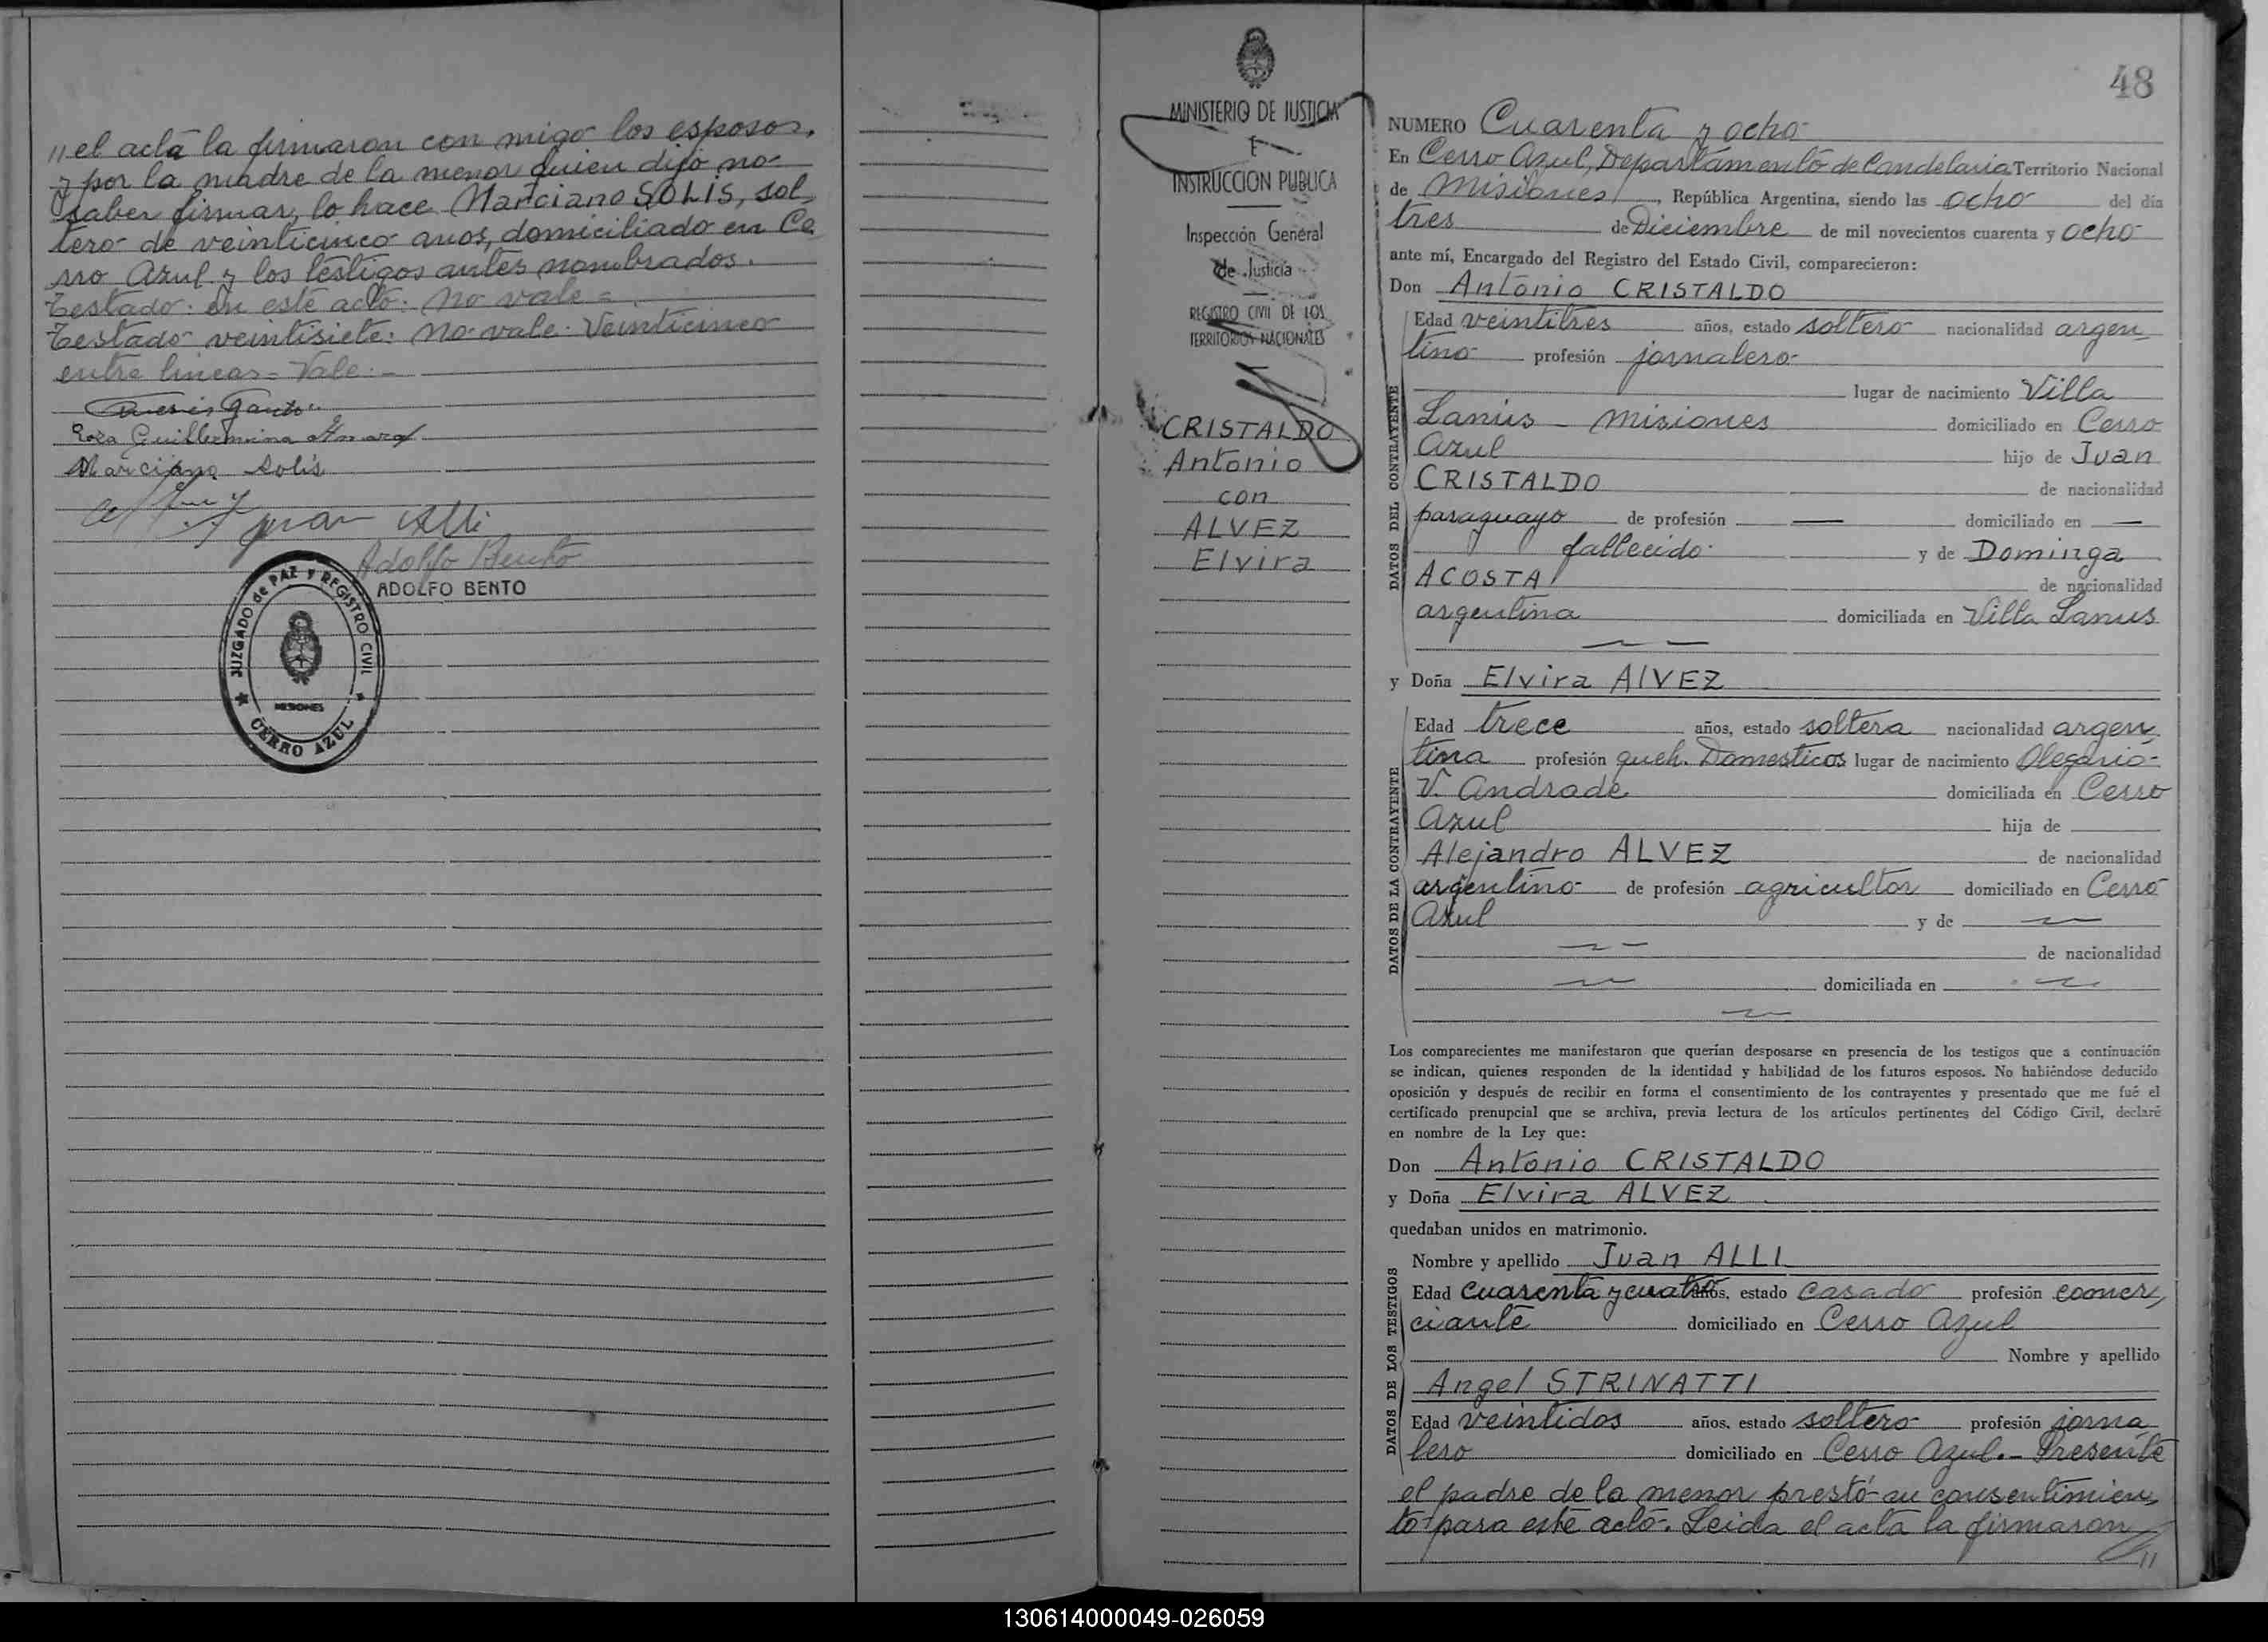 " el acta la firmaron con migo los esposos,
y por la madre de la menor quien dijo no
saber firmar, lo hace Marciano SOLIS, sol,
tero de veinticinco anos, domiciliado en Ce
rro Azul y los testigos antes nombrados.
Testado: en este acto: No vale =
Testado veintisiete: No vale: Veinticinco
entre lineas = Vale. -
Rosa Guillermina
Marciano Solis
Juan Alli
Adolfo Bento
ADOLFO BENTO
JUZGADO de PAZ y REGISTRO CIVIL
MISIONES
CERRO AZUL
MINISTERIO DE JUSTICIA
E
INSTRUCCION PUBLICA
Inspección General
de Justicia
REGISTRO CIVIL DE LOS
TERRITORIOS NACIONALES
CRISTALDO
Antonio
con
ALVEZ
Elvira
48
NUMERO Cuarenta y ocho
En Cerro Azul, Departamento de Candelaria Territorio Nacional
de Misiones, República Argentina, siendo las ocho del día
tres de Diciembre de mil novecientos cuarenta y ocho
ante mí, Encargado del Registro del Estado Civil, comparecieron:
Don Antonio CRISTALDO
DATOS DEL CONTRAYENTE
Edad veintitres años, estado soltero nacionalidad argen
tino profesión jornalero
lugar de nacimiento Villa
Lanus - Misiones domiciliado en Cerro
Azul hijo de Juan
CRISTALDO de nacionalidad
paraguayo de profesión — domiciliado en —
fallecido y de Dominga
ACOSTA de nacionalidad
argentina domiciliada en Villa Lanus
y Doña Elvira AlVEZ
DATOS DE LA CONTRAYENTE
Edad trece años, estado soltera nacionalidad argen,
tina profesión queh. Domesticos lugar de nacimiento Olegario
V. Andrade domiciliada en Cerro
Azul hija de
Alejandro ALVEZ de nacionalidad
argentino de profesión agricultor domiciliado en Cerro
Azul y de
de nacionalidad
domiciliada en
Los comparecientes me manifestaron que querían desposarse en presencia de los testigos que a continuación
se indican, quienes responden de la identidad y habilidad de los futuros esposos. No habiéndose deducido
oposición y después de recibir en forma el consentimiento de los contrayentes y presentado que me fué el
certificado prenupcial que se archiva, previa lectura de los artículos pertinentes del Código Civil, declaré
en nombre de la Ley que:
Don Antonio CRISTALDO
y Doña Elvira ALVEZ
quedaban unidos en matrimonio.
DATOS DE LOS TESTIGOS
Nombre y apellido Juan ALLI
Edad cuarenta y cuatro años, estado casado profesión comer,
ciante domiciliado en Cerro Azul
Nombre y apellido
Angel STRINATTI
Edad veintidos años, estado soltero profesión jorna
lero domiciliado en Cerro Azul.- Presente
el padre de la menor prestó su consentimien,
to para este acto. Leida el acta la firmaron
"
130614000049-026059